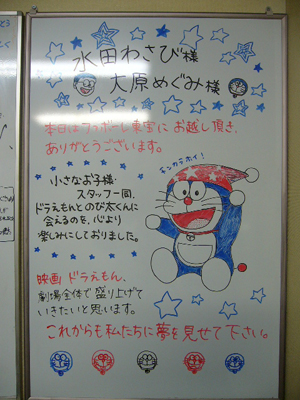 水田わさび様
大原めぐみ様
本日はコロナシネマワールドにお越し頂き、
ありがとうございます。
チンカラホイ!
小さなお子様・
スタッフ一同、
ドラえもんとのび太くんに
会えるのを、心より
楽しみにしておりました。
映画 ドラえもん、
劇場全体で盛り上げて
いきたいと思います。
これからも私たちに夢を見せて下さい。